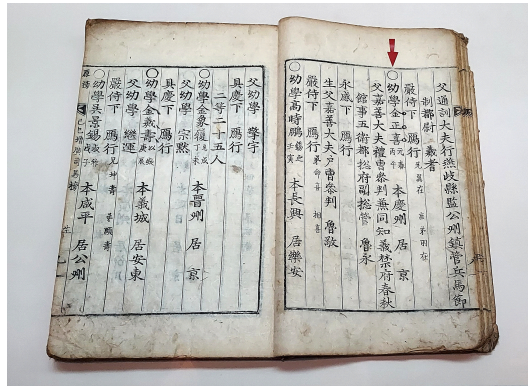 父通訓大夫行燕岐縣監公州鎮管兵馬節
制都尉 羲者
嚴侍下 鴈行
○幼學金正喜元春丙午 本慶州 居 京
父嘉善大夫禮曹參判兼同知義禁府春秋
館事五衛都摠府副摠管 魯永
永感下 鴈行
生父嘉善大夫戶曹參判 魯敬
嚴侍下 鴈行 弟命喜 相喜
○幼學高時鵬 壬寅 本長興 居樂安
父幼學 擎宇
具慶下 鴈行
二等二十五人
○幼學金象履 本晉州 居 京
父幼學 宗黙
具慶下 鴈行
○幼學金 壽 本義城 居安東
父幼學 繼運
嚴侍下 鴈行 兄坤壽 弟頤壽
○幼學吳景錫 本咸平 居公州